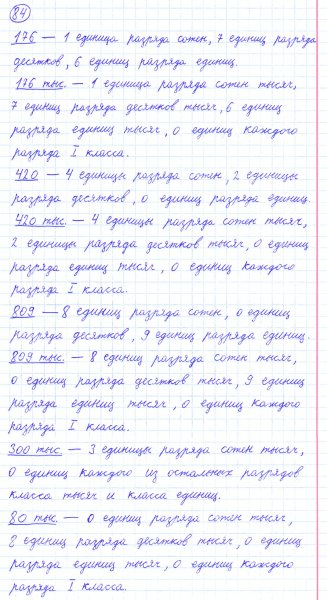 84
176 — 1 единица разряда сотен, 7 единиц разряда
десятков, 6 единиц разряда единиц.
176 тыс. — 1 единица разряда сотен тысяч,
7 единиц разряда десятков тысяч, 6 единиц
разряда единиц тысяч, 0 единиц каждого
разряда I класса.
420 — 4 единицы разряда сотен, 2 единицы
разряда десятков, 0 единиц разряда единиц.
420 тыс. — 4 единицы разряда сотен тысяч,
2 единицы разряда десятков тысяч, 0 единиц
разряда единиц тысяч, 0 единиц каждого
разряда I класса.
809 — 8 единиц разряда сотен, 0 единиц
разряда десятков, 9 единиц разряда единиц.
809 тыс. — 8 единиц разряда сотен тысяч,
0 единиц разряда десятков тысяч, 9 единиц
разряда единиц тысяч, 0 единиц каждого
разряда I класса.
300 тыс. — 3 единицы разряда сотен тысяч,
0 единиц каждого из остальных разрядов
класса тысяч и класса единиц.
80 тыс. — 0 единиц разряда сотен тысяч,
8 единиц разряда десятков тысяч, 0 единиц
разряда единиц тысяч, 0 единиц каждого
разряда I класса.